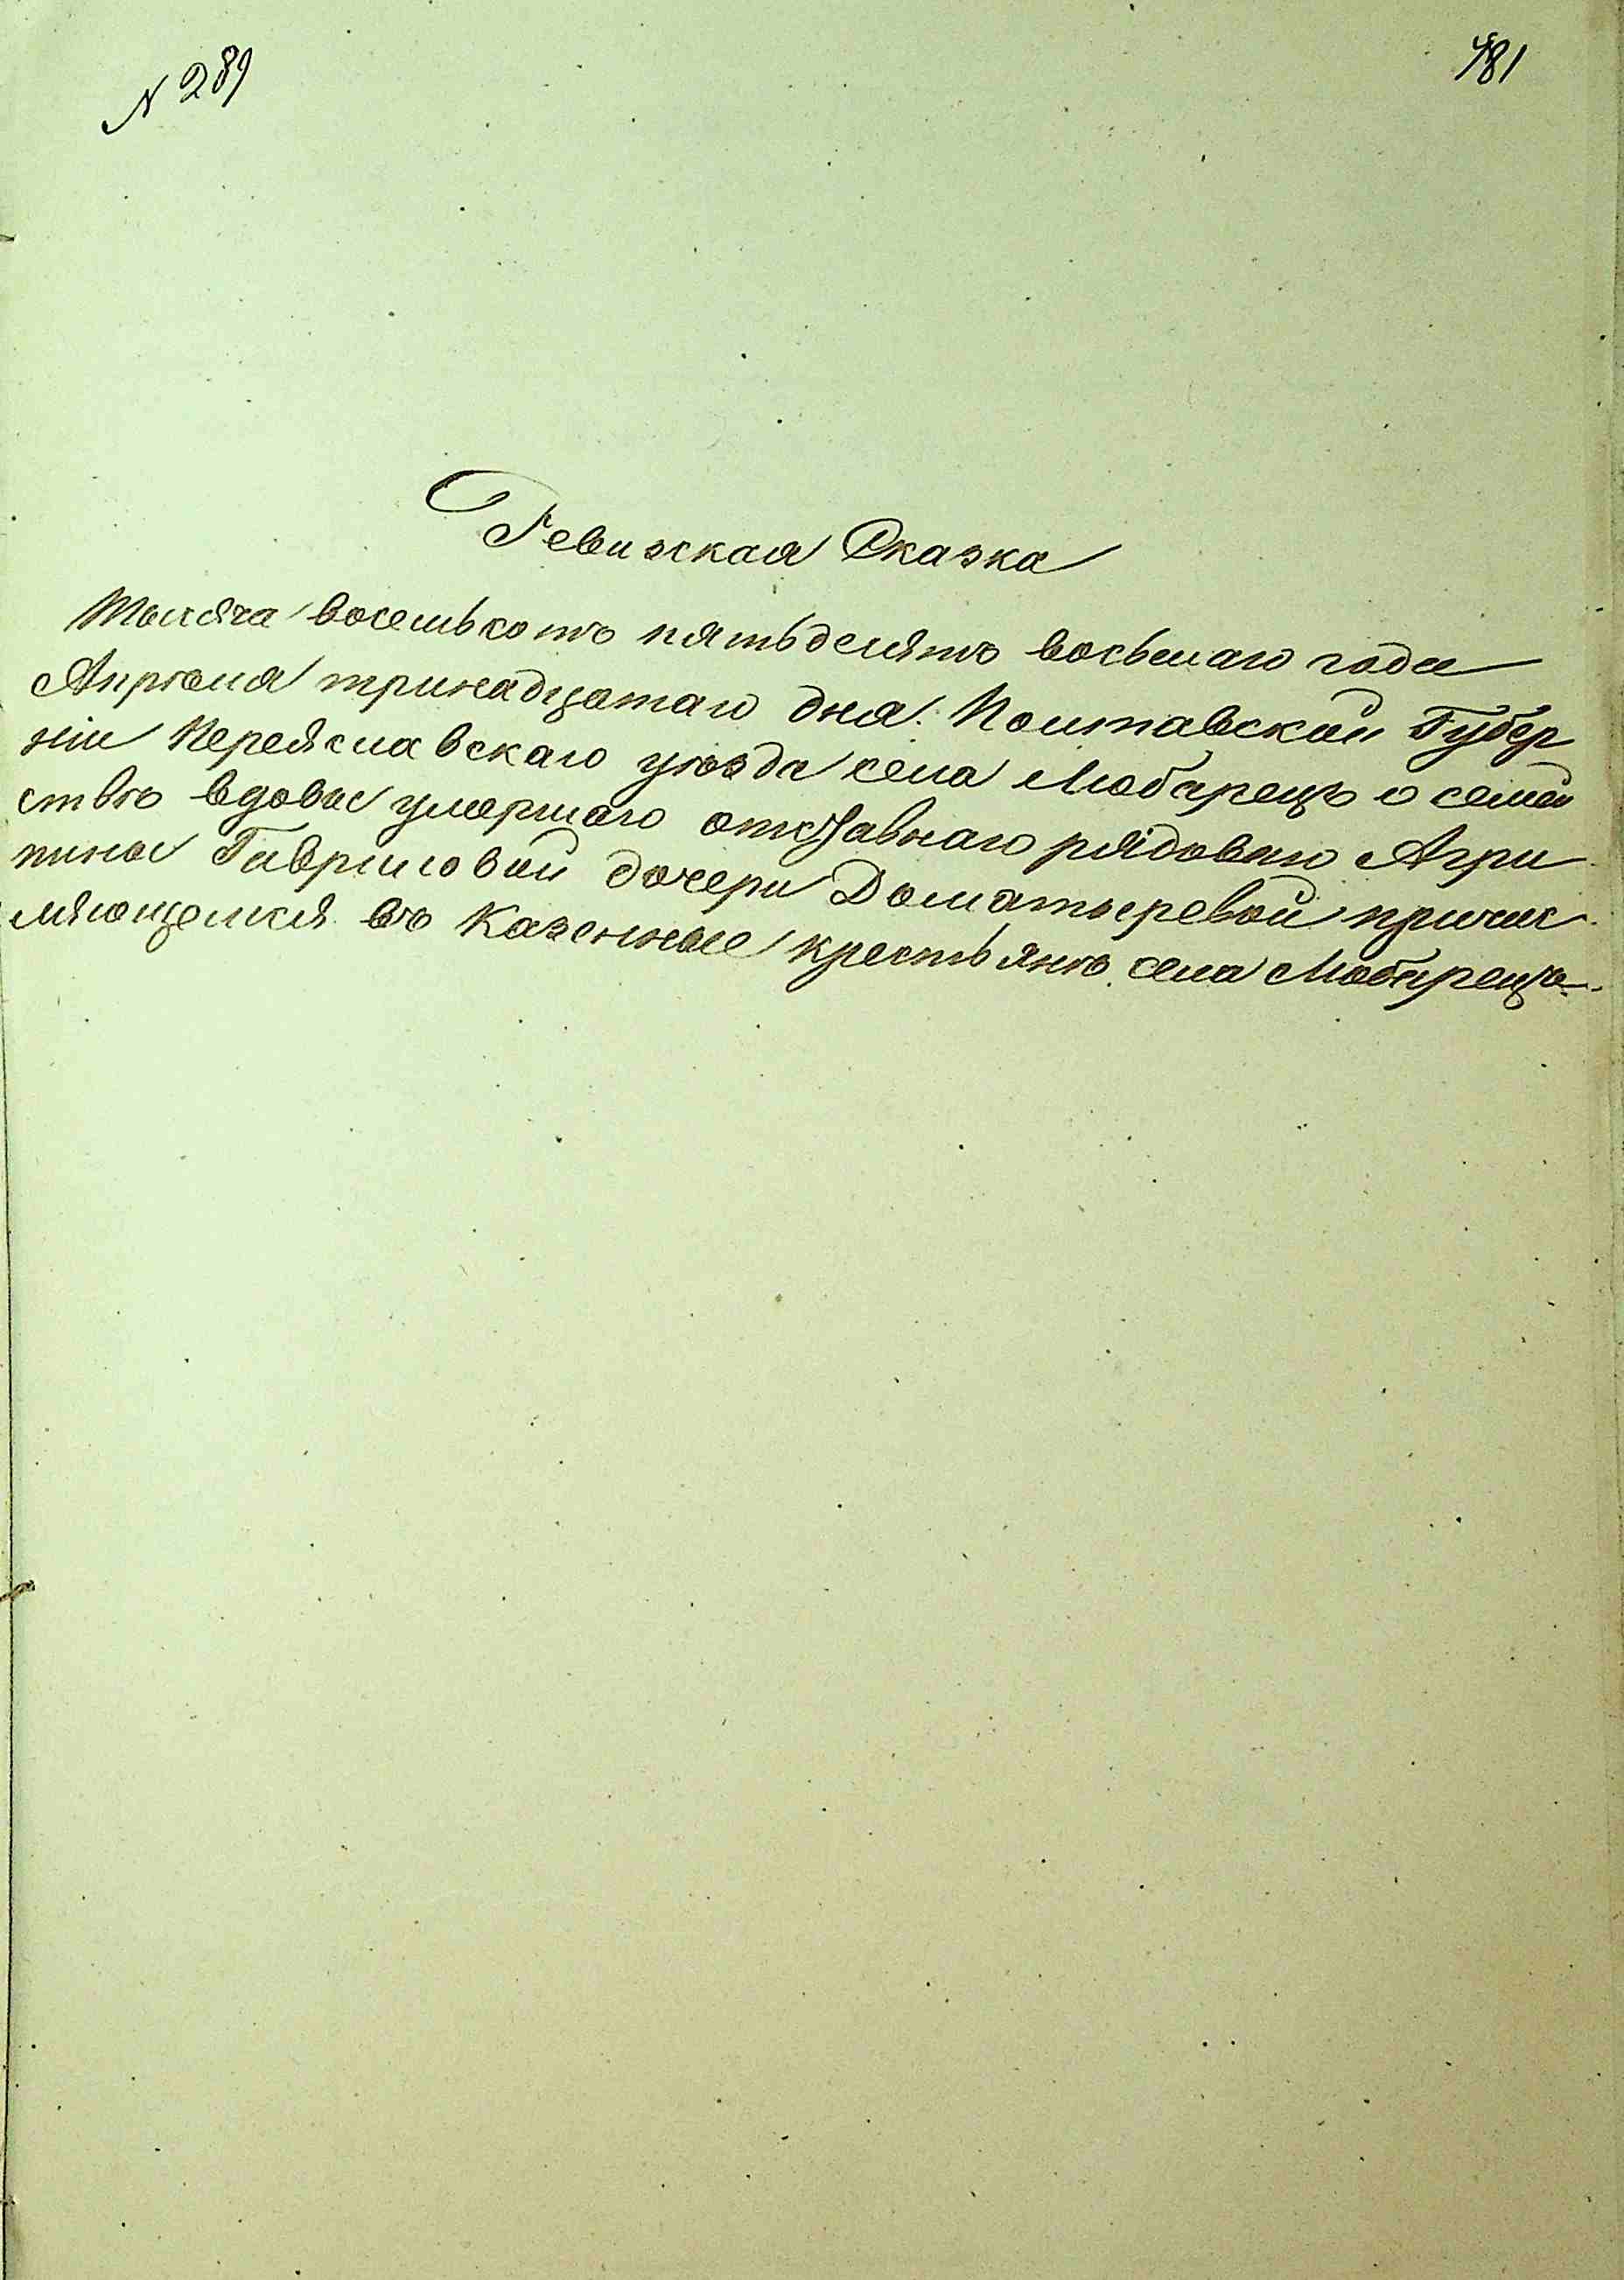 N 289
481
Ревизская Сказка
Тысяча восемьсотъ пятьдесятъ восьмаго года
Апрѣля тринадцатаго дня. Полтавской Губер
ніи Переяславскаго уѣзда села Любарецъ о семей
ствѣ вдовы умершаго отставнаго рядоваго Агри
пины Гавриловой дочери Доматыревой причис
ляющемся въ Казенные крестьяне села Любарецъ.